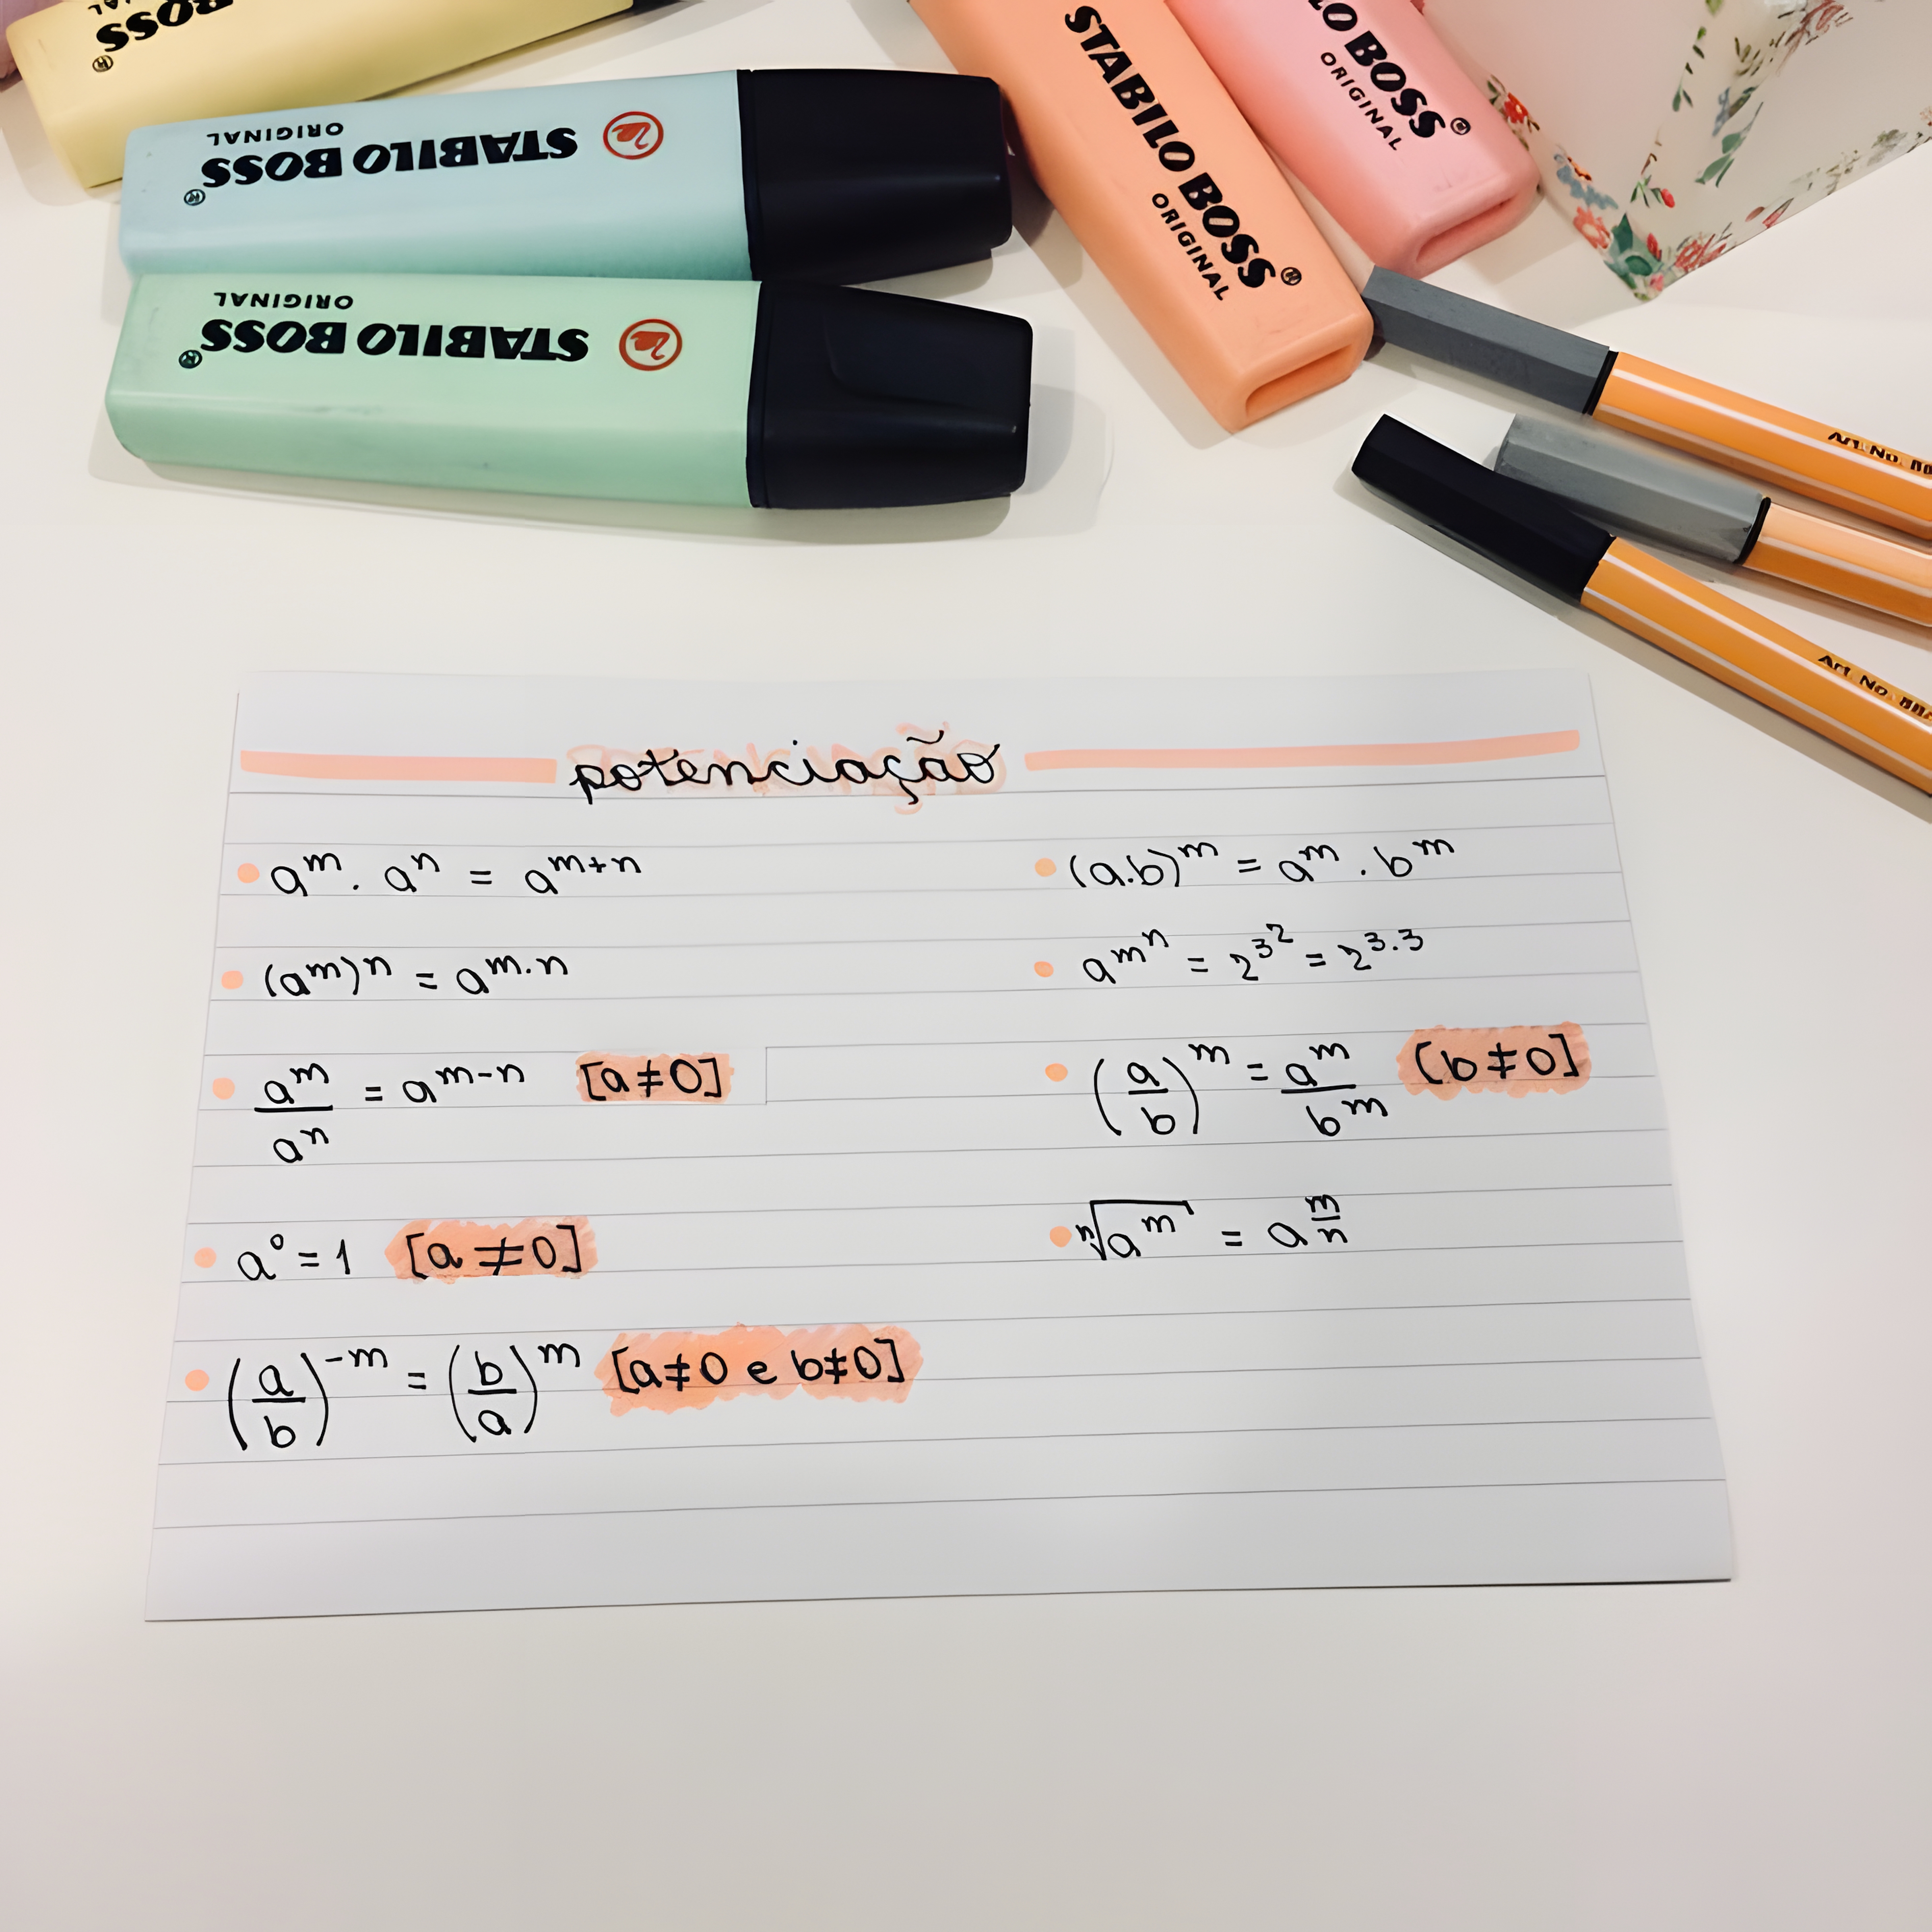 BOSS
STABILO BOSS
ORIGINAL
STABILO BOSS
ORIGINAL
STABILO BOSS
ORIGINAL
BOSS
ORIGINAL
Art. No.
Art. No.
potenciação
a^m . a^n = a^{m+n}
(a^m)^n = a^{m.n}
a^m/a^n = a^{m-n} [a≠0]
a^0 = 1 [a≠0]
(a/b)^{-m} = (b/a)^m [a≠0 e b≠0]
(a.b)^m = a^m . b^m
a^{m^n} = 2^{3^2} = 2^{3.3}
(a/b)^m = a^m/b^m [b≠0]
ⁿ√a^m = a^{m/n}